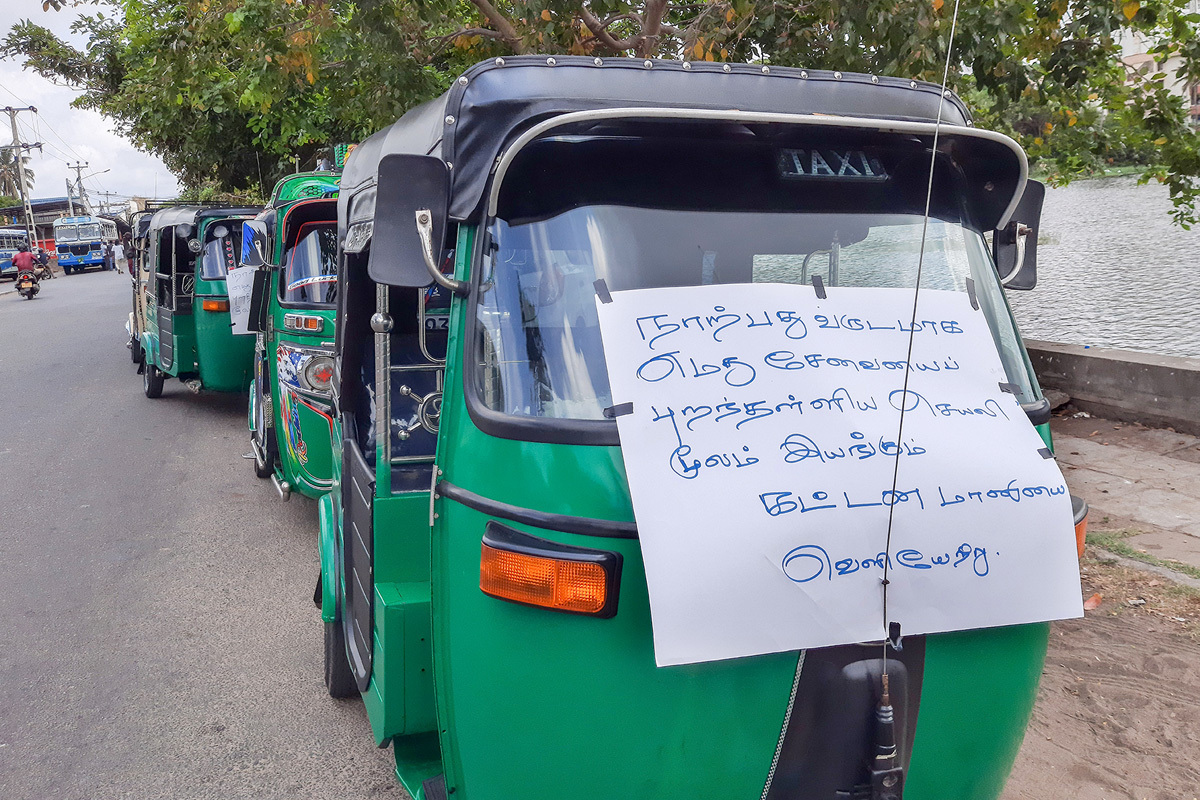 TAXI
நாற்பது வருடமாக
எமது சேவையைப்
புறந்தள்ளிய செயலி
மூலம் இயங்கும்
கட்டண மானியை
வெளியேற்று.